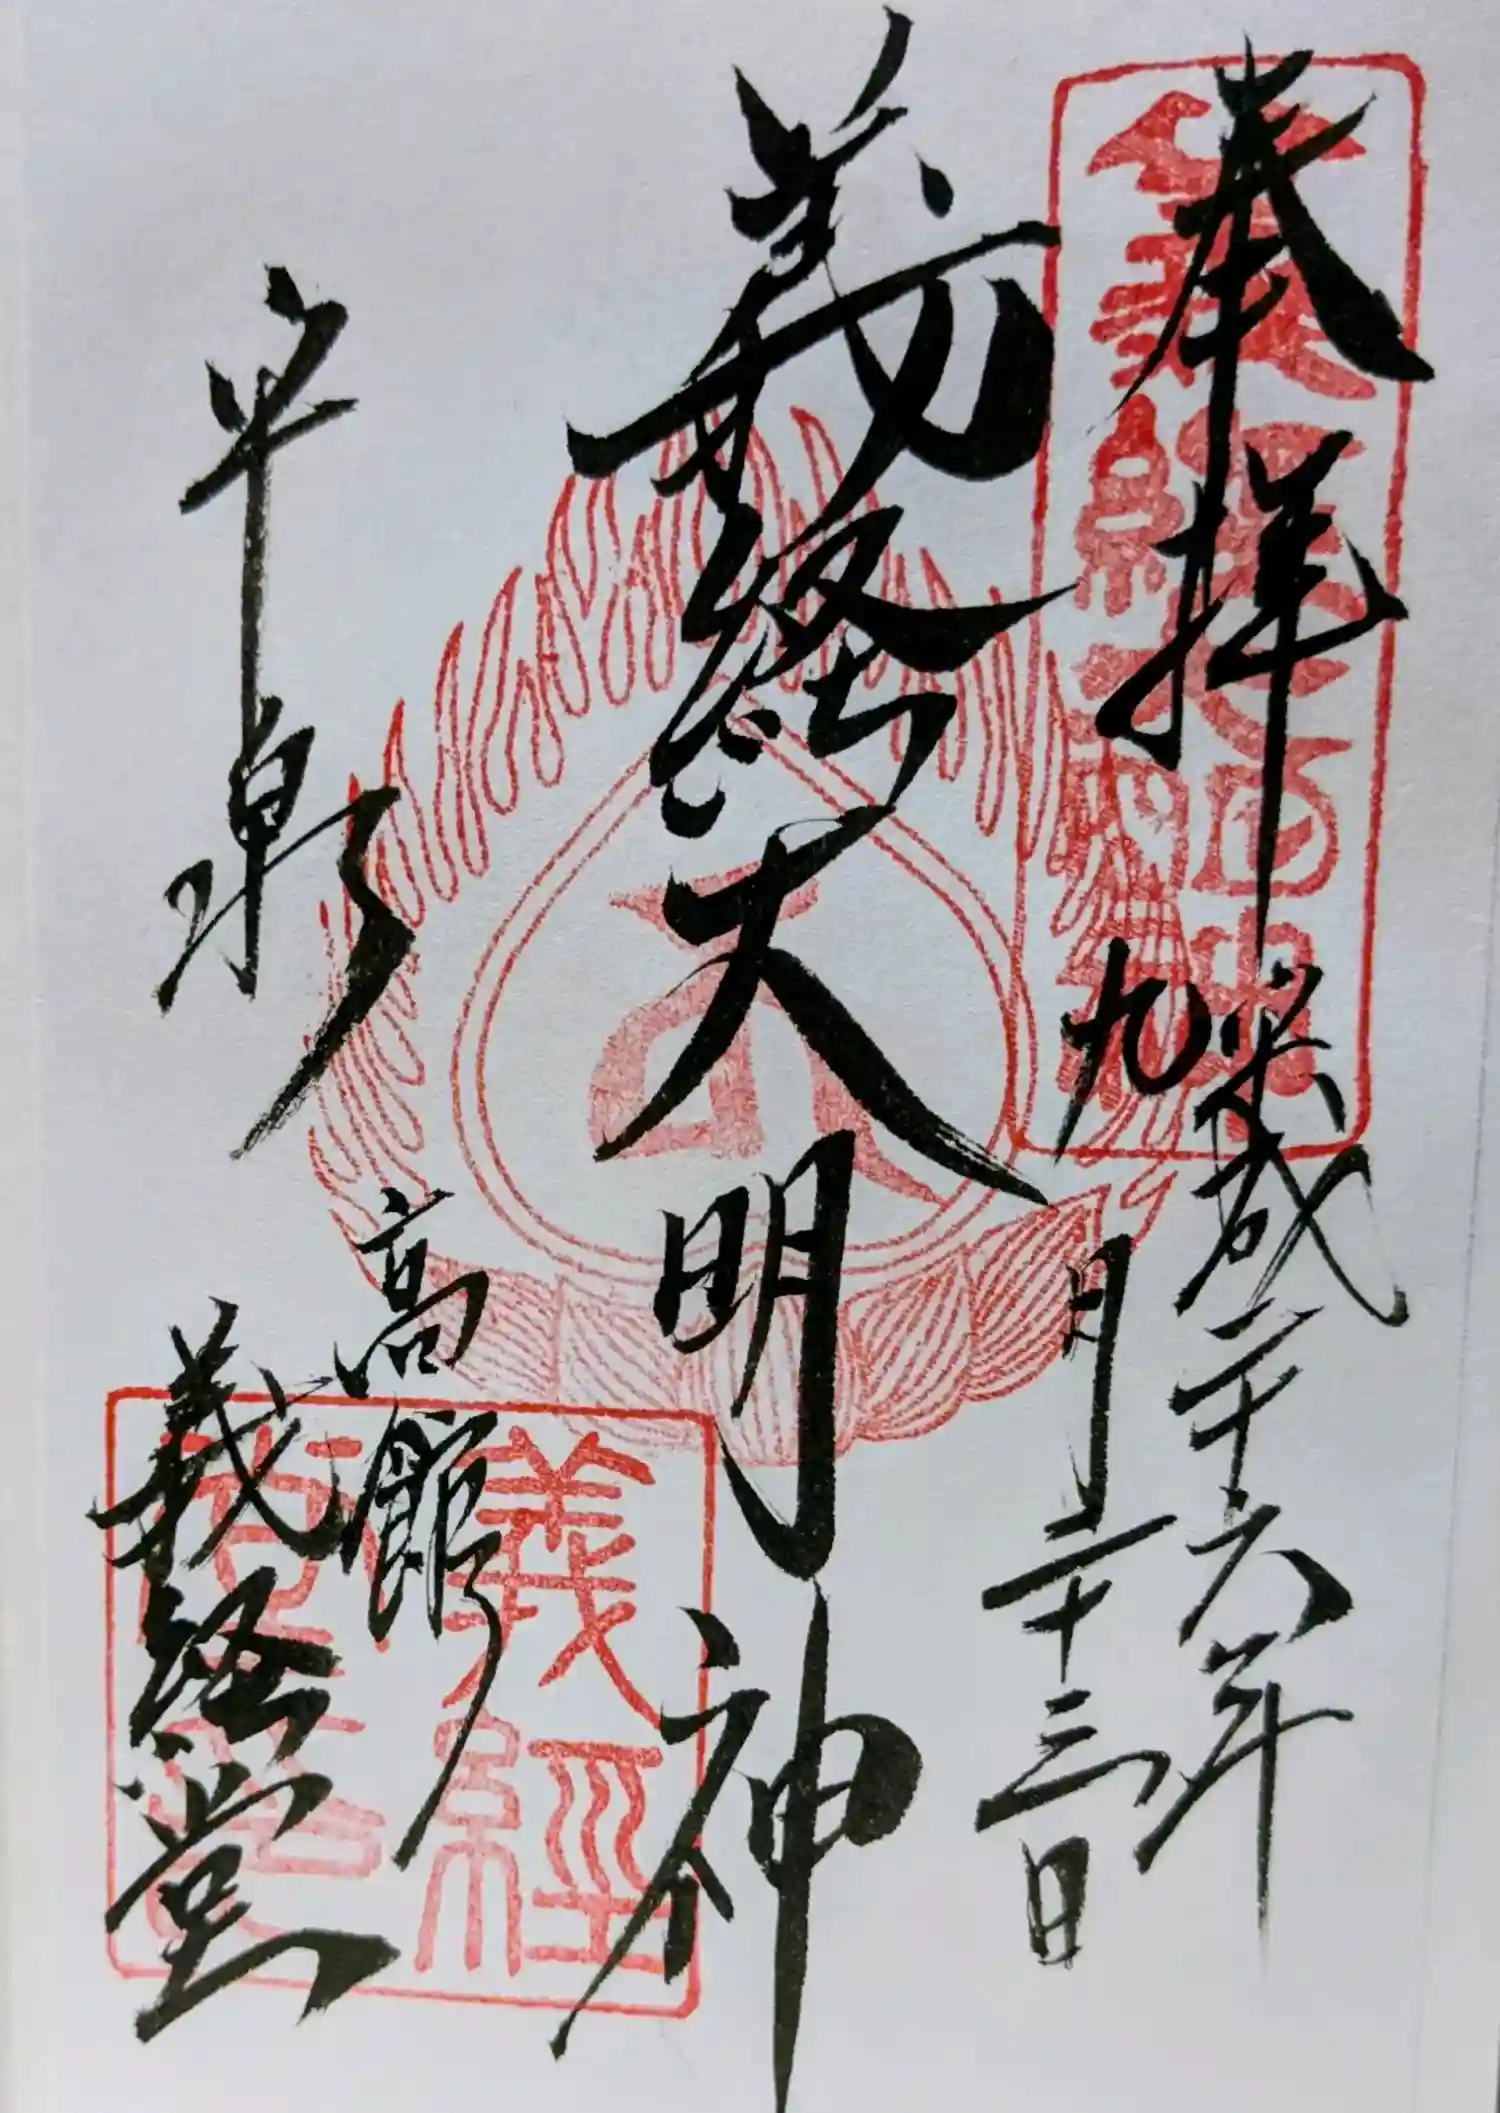 奉拝
平成二十六年
九月二十三日
義経大明神
平泉
高館
義経堂
義經